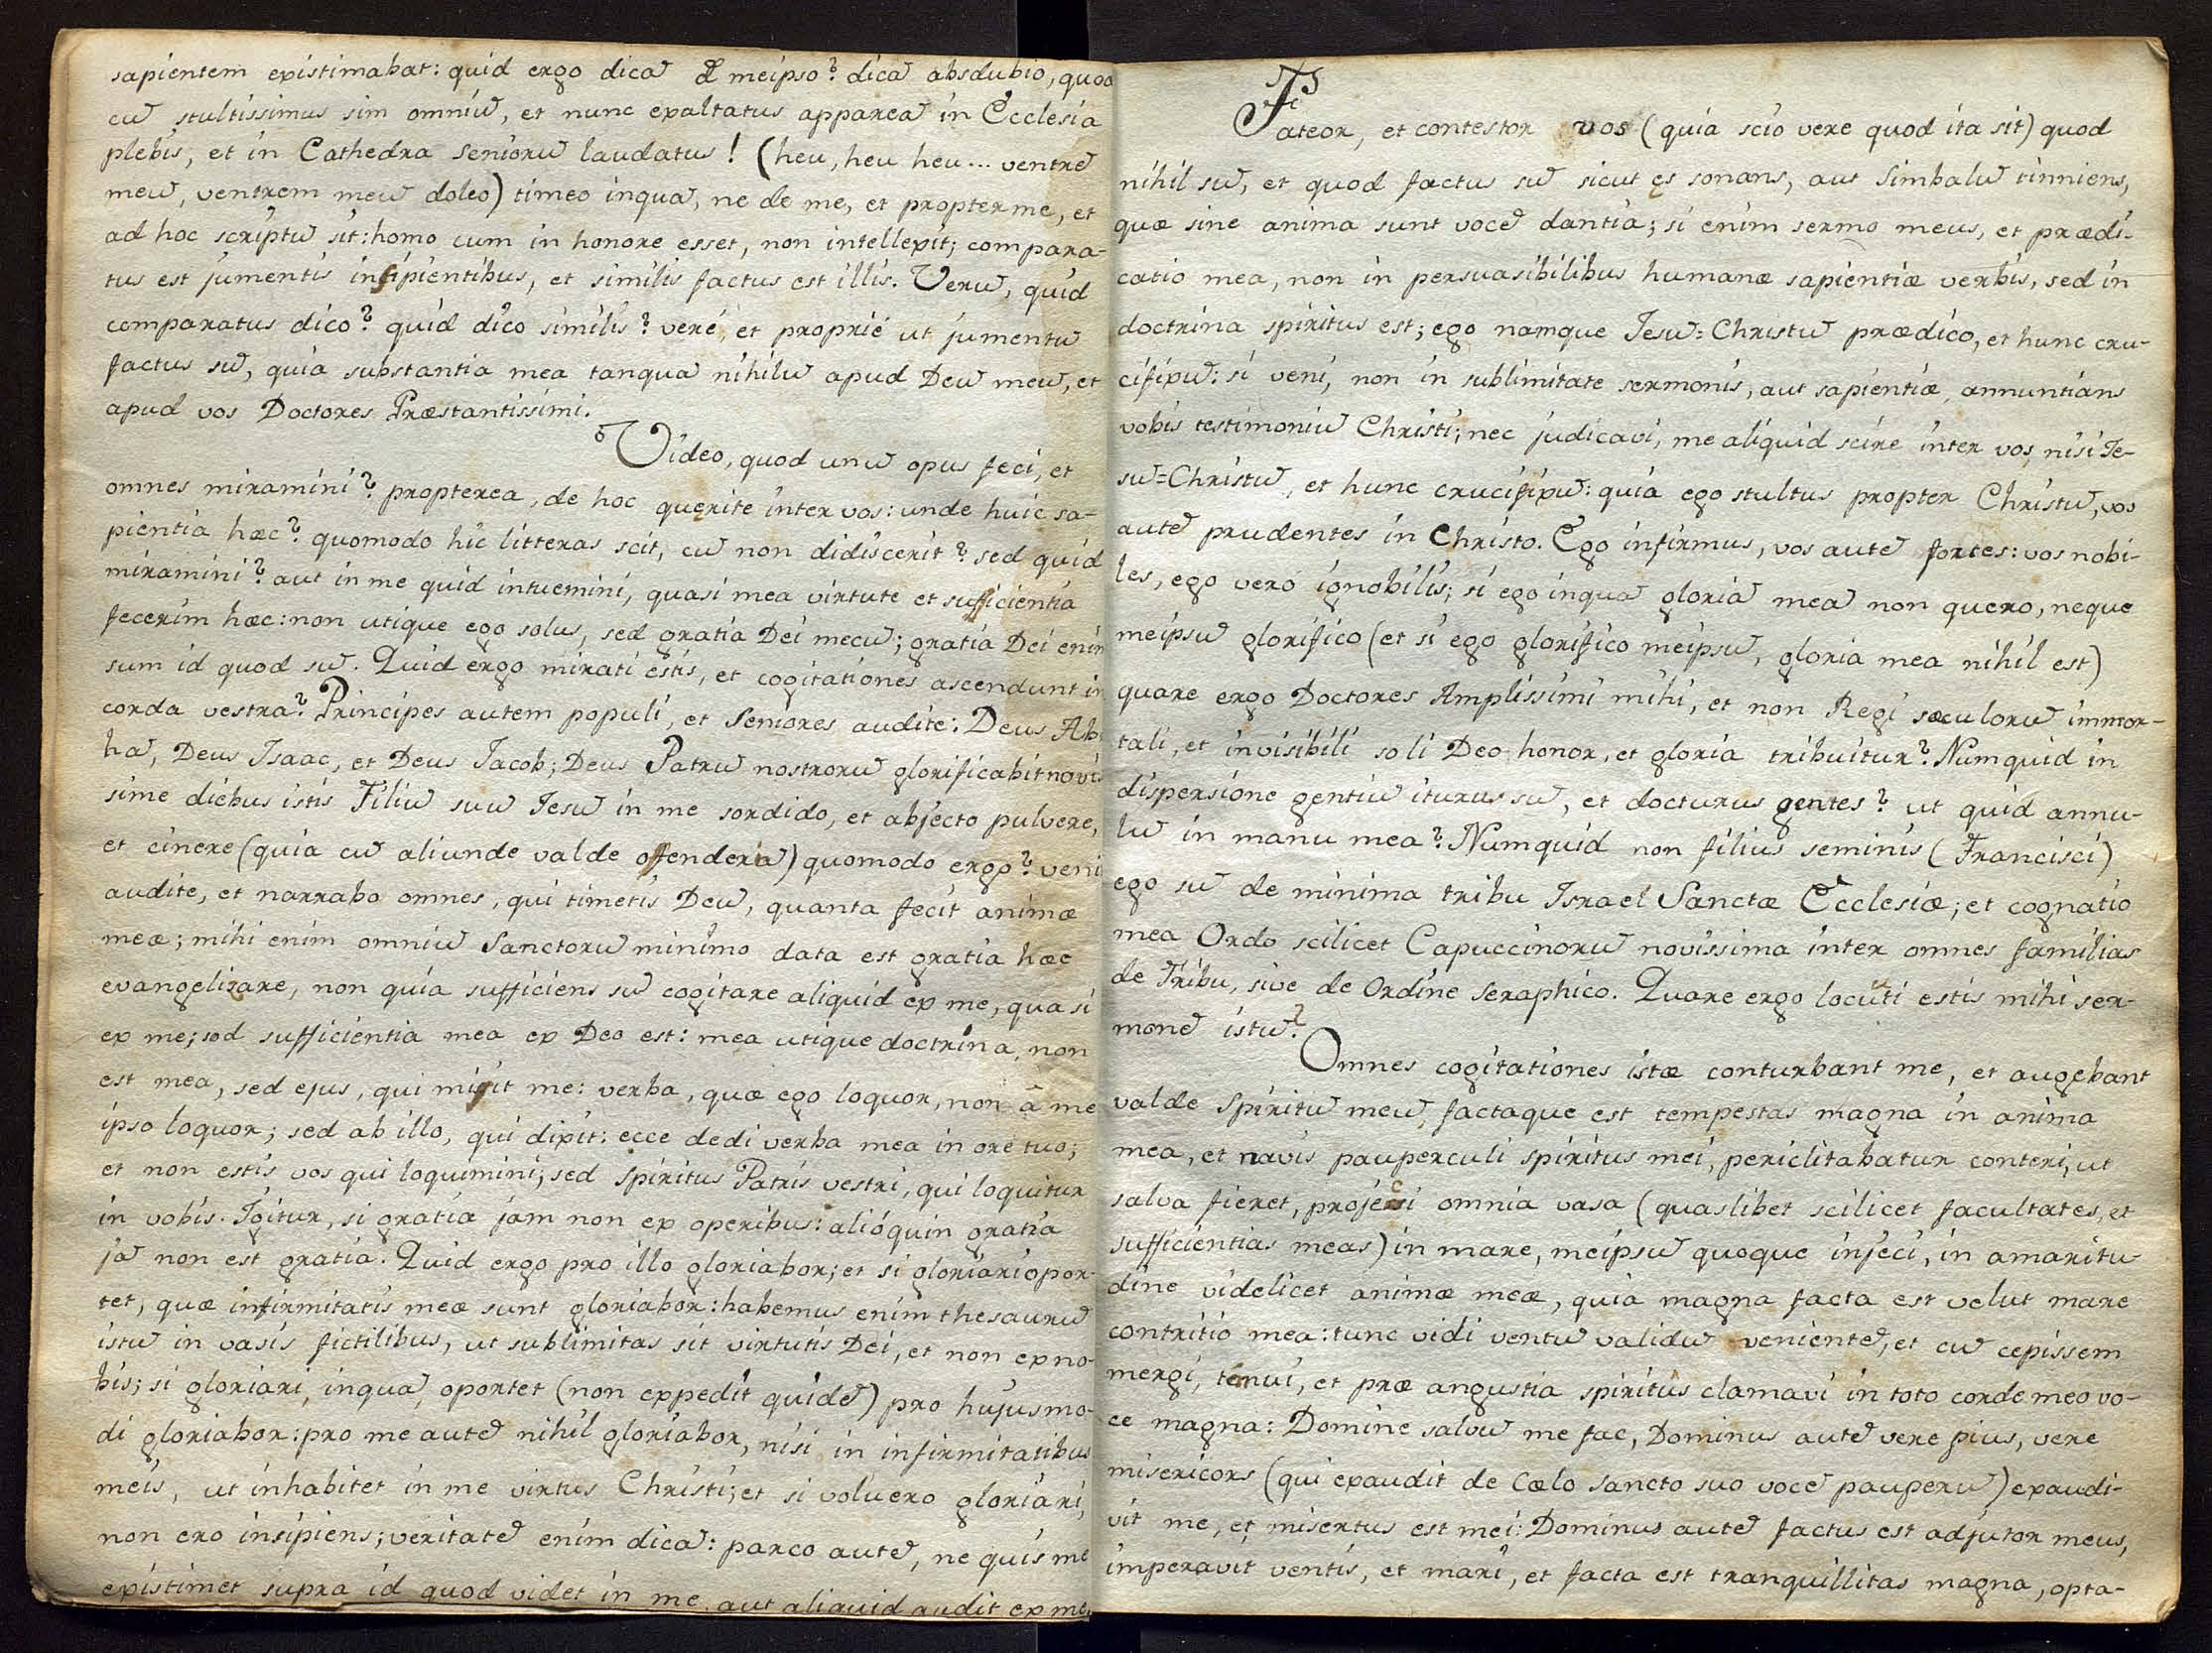 sapientem existimabat: quid ergo dicã de meipso? dicã absdubio, quod
cũ stultissimus sim omniũ, et nunc exaltatus appareã in Ecclesia
plebis, et in Cathedra Senioru laudatus! (heu, heu heu... ventrẽ
meũ, ventrem meũ doleo) timeo inquã, ne de me, et propter me, et
ad hoc scriptũ sit: homo cum in honore esset, non intellexit; compara-
tus est jumentis insipientibus, et similis factus est illis. Verũ, quid
comparatus dico? quid dico similis? veré, et proprié ut jumentũ
factus sũ, quia substantia mea tanquã nihilũ apud Deũ meũ, et
apud vos Doctores Præstantissimi.
Video, quod unũ opus feci, et
omnes miramini? propterea, de hoc querite inter vos: unde huic sa-
pientia hæc? quomodo hic litteras scit, cũ non didiscerit? sed quid
miramini? aut in me quid intuemini, quasi mea virtute et sufficientia
fecerim hæc: non utique ego solus, sed gratia Dei mecũ; gratia Dei enim
sum id quod sũ. Quid ergo mirati estis, et cogitationes ascendunt in
corda vestra? Principes autem populi, et Seniores audite: Deus Ab
hã, Deus Isaac, et Deus Jacob; Deus Patrũ nostrorũ glorificabit novis
sime diebus istis Filiũ suũ Jesũ in me sordido, et abjecto pulvere,
et cinere (quia cũ aliunde valde offenderiã) quomodo ergo? veni
audite, et narrabo omnes, qui timetis Deũ, quanta fecit animæ
meæ; mihi enim omniũ Sanctorũ minimo data est gratia hæc
evangelizare, non quia sufficiens sũ cogitare aliquid ex me, quasi
ex me; sod sufficientia mea ex Deo est: mea utique doctrina, non
est mea, sed ejus, qui misit me: verba, quæ ego loquor, non â me
ipso loquor; sed ab illo, qui dixit: ecce dedi verba mea in ore tuo;
et non estis vos qui loquimini; sed Spiritus Patris vestri, qui loquitur
in vobis. Igitur, si gratia jam non ex operibus: alióquin gratia
jã non est gratia. Quid ergo pro illo gloriabor; et si gloriari opor-
tet, quæ infirmitatis meæ sunt gloriabor: habemus enim thesaurũ
istũ in vasis fictilibus, ut sublimitas sit virtutis Dei, et non ex no-
bis; si gloriari, inquã, oportet (non expedit quidẽ) pro hujusmo-
di gloriabor: pro me autẽ nihil gloriabor, nisi in infirmitatibus
meis, ut inhabitet in me virtus Christi; et si voluero gloriari,
non ero insipiens; veritatẽ enim dicã: parco autẽ, ne quis me
existimet supra id quod videt in me, aut aliquid audit ex me.
Fateor, et contestor vos (quia scio vere quod ita sit) quod
nihil sũ, et quod factus sũ sicut ęs sonans, aut Simbalũ tinniens,
quæ sine anima sunt vocẽ dantia; si enim sermo meus, et prædi-
catio mea, non in persuasibilibus humanæ sapientiæ verbis, sed in
doctrina spiritus est; ego namque Jesũ=Christũ prædico, et hunc cru-
cifixũ: si veni, non in sublimitate sermonis, aut sapientiæ, annuntians
vobis testimoniũ Christi; nec judicavi, me aliquid scire inter vos, nisi Je-
sũ=Christũ, et hunc crucifixũ: quia ego stultus propter Christũ, vos
autẽ prudentes in Christo. Ego infirmus, vos autẽ fortes: vos nobi-
les, ego vero ignobilis; si ego inquã gloriã meã non quero, neque
meipsũ glorifico (et si ego glorifico meipsũ, gloria mea nihil est)
quare ergo Doctores Amplissimi mihi, et non Regi sæculorũ immor-
tali, et invisibili soli Deo honor, et gloria tribuitur? Numquid in
dispersione gentiũ iturus sũ, et docturus gentes? ut quid annu-
lũ in manu mea? Numquid non filius seminis (Francisci)
ego sũ de minima tribu Israel Sanctæ Ecclesiæ; et cognatio
mea Ordo scilicet Capuccinorũ novissima inter omnes familias
de Tribu, sive de Ordine Seraphico. Quare ergo locuti estis mihi ser-
monẽ istũ?
Omnes cogitationes istæ conturbant me, et augebant
valde Spiritũ meũ, factaque est tempestas magna in anima
mea, et navis pauperculi spiritus mei, periclitabatur conteri; ut
salva fieret, projeci omnia vasa (quaslibet scilicet facultates, et
sufficientias meas) in mare, meipsũ quoque injeci, in amaritu-
dine videlicet animæ meæ, quia magna facta est velut mare
contritio mea: tunc vidi ventũ validũ venientẽ, et cũ cepissem
mergi, tenui, et præ angustia spiritus clamavi in toto corde meo vo-
ce magna: Domine salvũ me fac, Dominus autẽ vere pius, vere
misericors (qui exaudit de Cœlo sancto suo vocẽ pauperũ) exaudi-
vit me, et misertus est mei: Dominus autẽ factus est adjutor meus,
imperavit ventis, et mari, et facta est tranquillitas magna, opta-